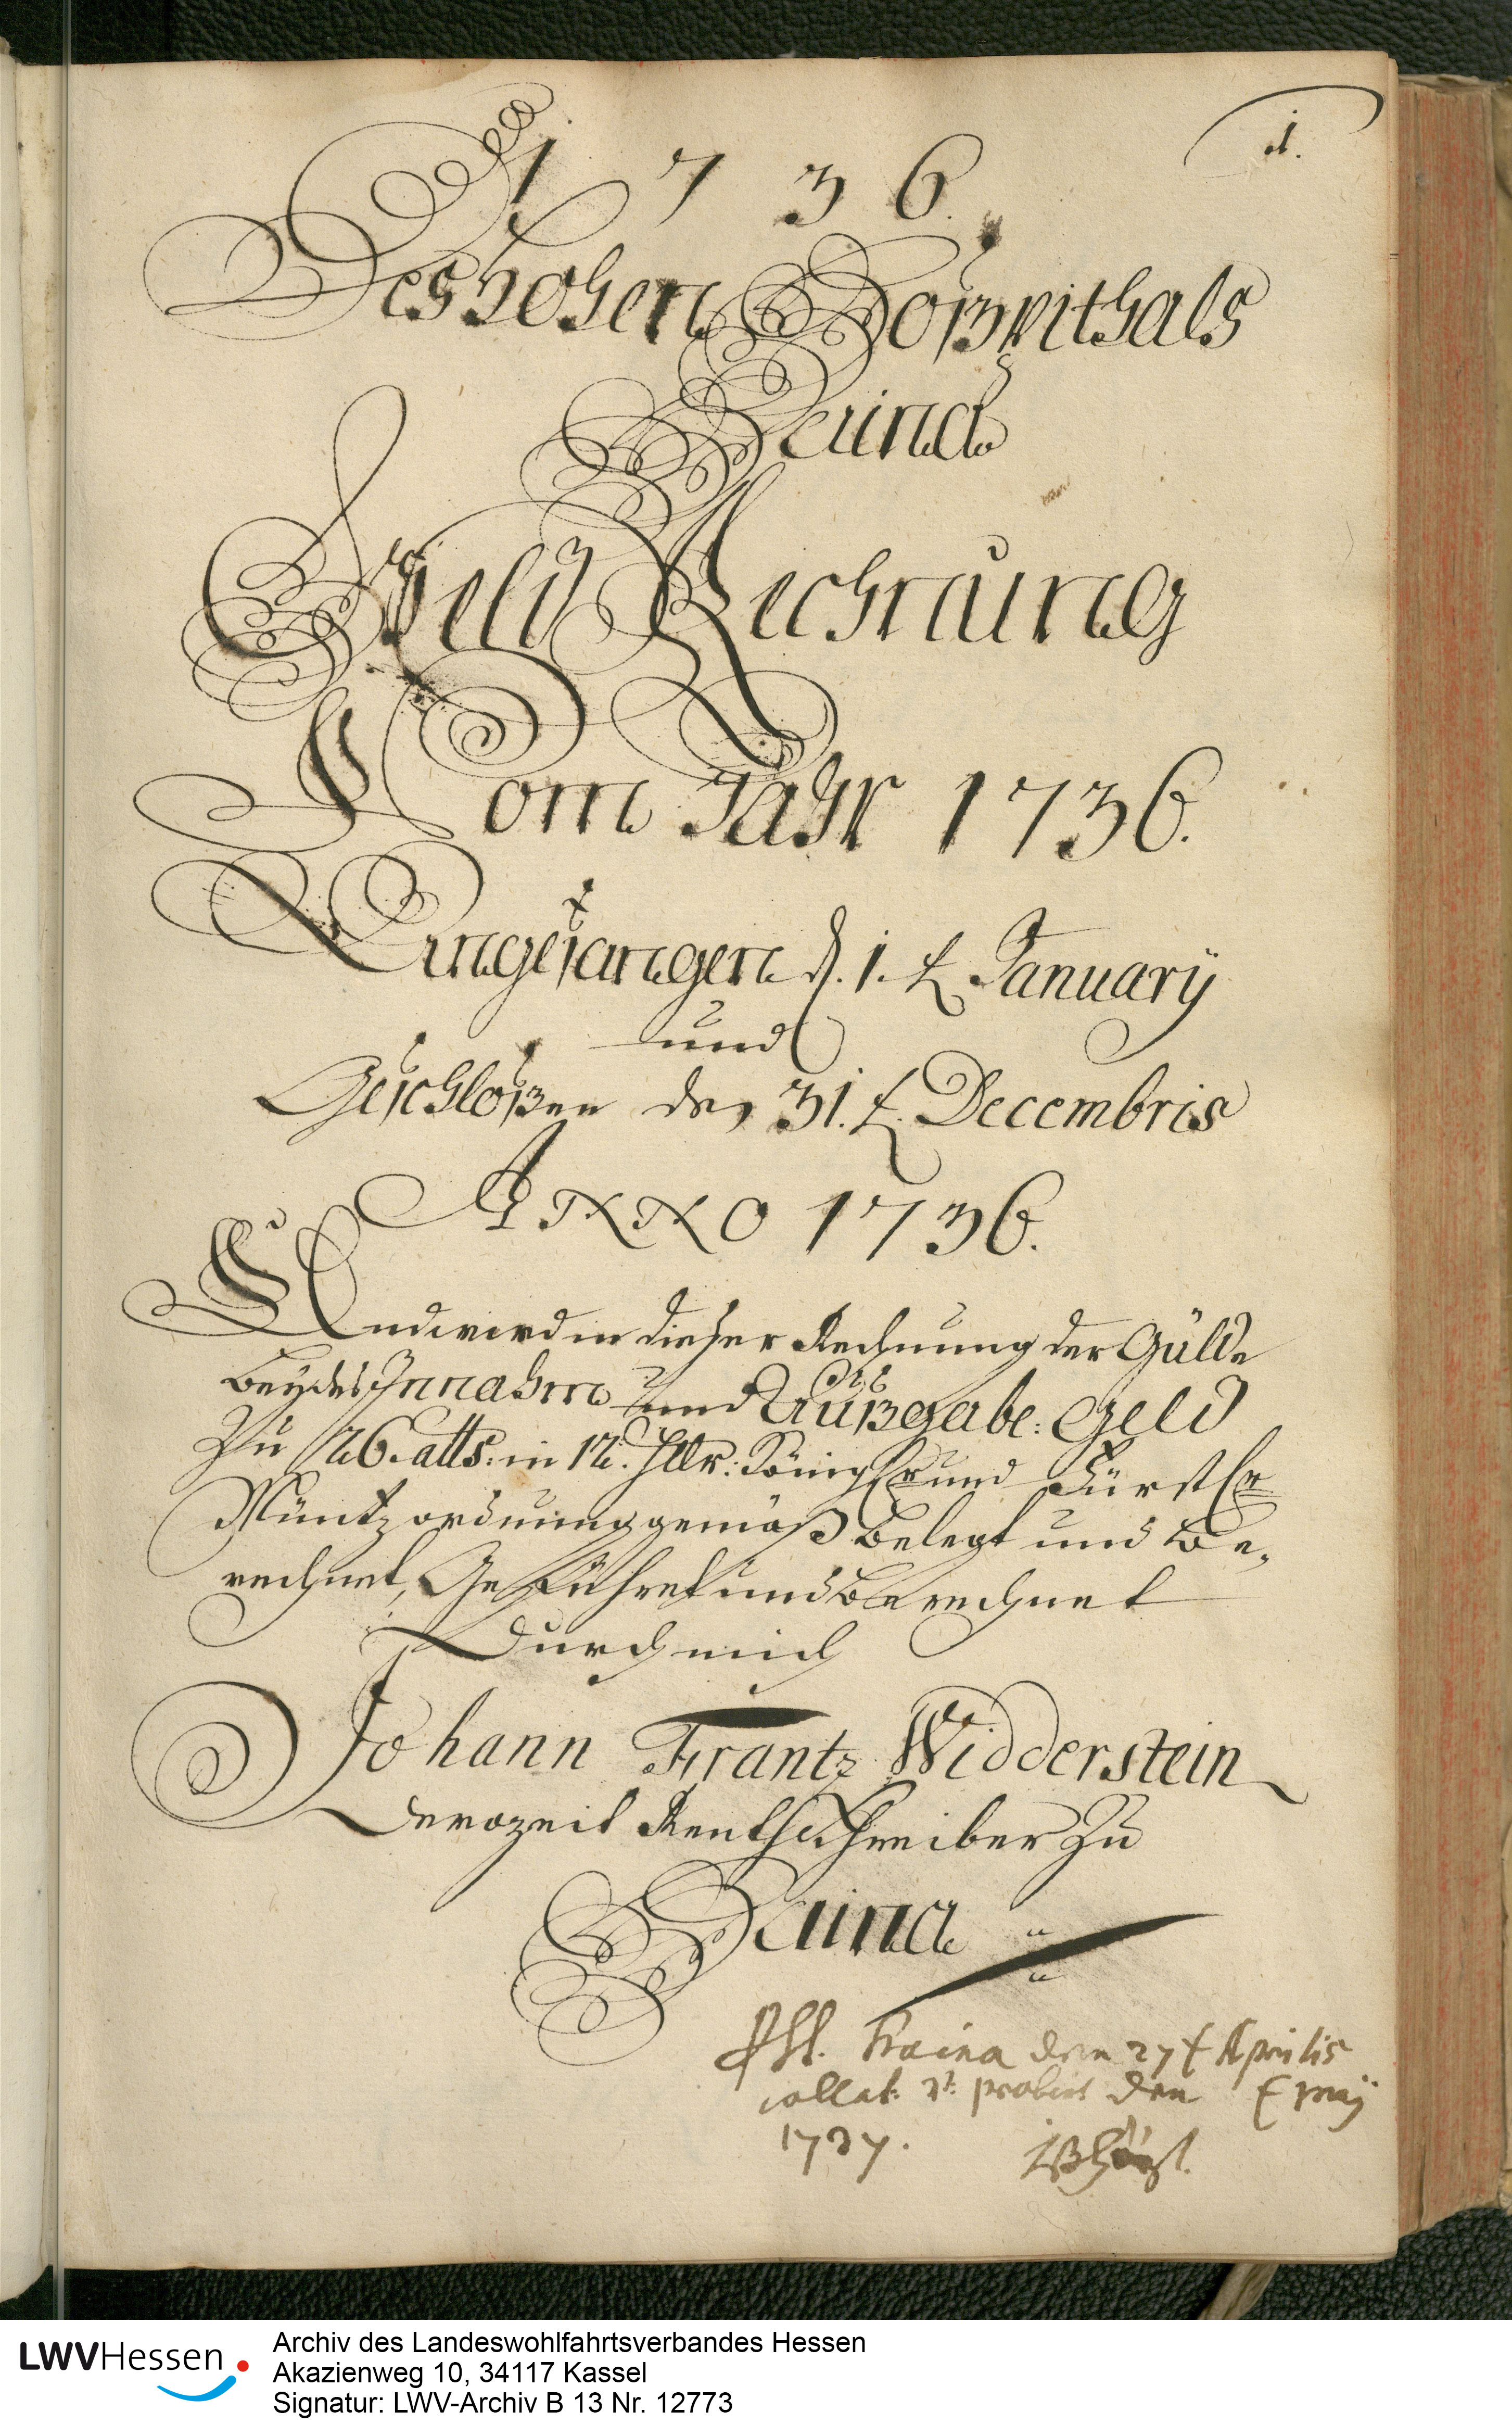 1.
1736.
Des hohen Hoßpithals
Haina
Geld Rechnung
Vom Jahr 1736.
Angefangen d. 1. t. January
und
Geschloßen den 31. t. Decembris
ANNO 1736.
Und wird in dießer Rechnung der Gülde
beydes Innahm und Außgabe: Geld
Zu 26. albs: in 12. hllr: Königl. und Fürstl.
Müntzordnung gemäß belegt und be-
rechnet, Geführet und berechnet
durch mich
Johann Frantz Widderstein
derozeit Rentschreiber zu
Haina
Haina den 27 t Aprilis
collat: et probirt den t may
1737.
LWVHessen
Archiv des Landeswohlfahrtsverbandes Hessen
Akazienweg 10, 34117 Kassel
Signatur: LWV-Archiv B 13 Nr. 12773